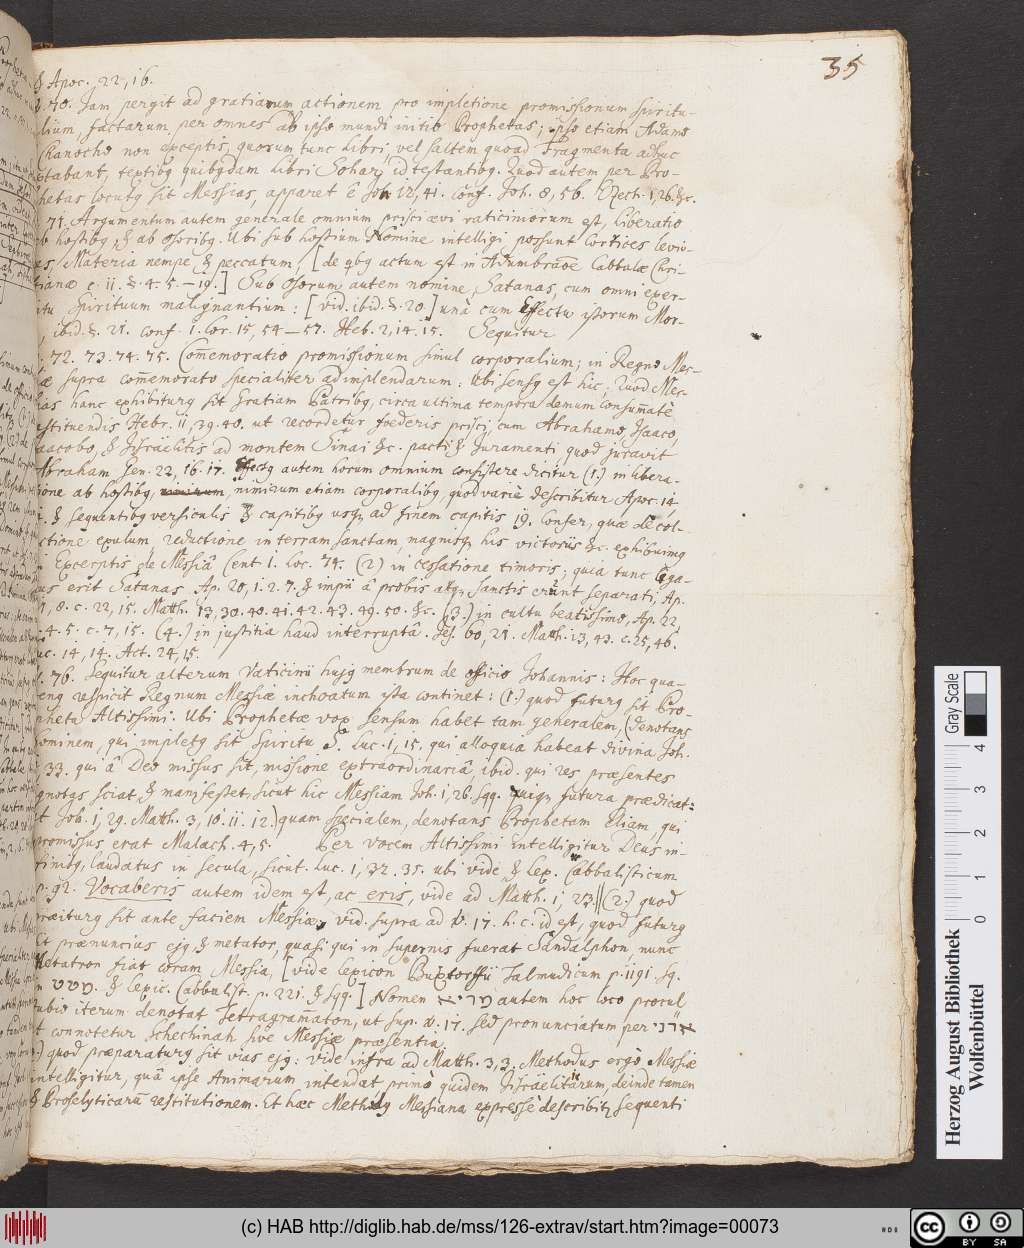 35
& Apoc. 22, 16.
70. Jam pergit ad gratiarum actionem pro impletione promissionum spiritu-
alium, factarum per omnes ab ipso mundi initio Prophetas; ipso etiam Adamo
Chanocho non exceptis, quorum tunc libri, vel saltem quoad Fragmenta adhuc
extabant, textibq quibqdam libri Sohar id testantibq. Quod autem per Pro-
phetas locutq sit Messias, apparet ê Joh 12, 41. conf. Joh. 8, 56. Ezech. 1, 26. &c.
71. Argumentum autem generale omnium prisci ævi vaticiniorum est, liberatio
ab hostibq, & ab osoribq. Ubi sub hostium Nomine intelligi possunt Cortices levio-
res, Materia nempe & peccatum, [de qbq actum est in Adumbraõe Cabbalæ Chri-
stianæ c. 11. §. 4. 5. — 19.] Sub osorum autem nomine, Satanas, cum omni exer-
citu Spirituum malignantium: [vid. ibid. §. 20.] unà cum Effectu istorum Mor-
ibid. §. 21. conf. 1. Cor. 15, 54 — 57. Heb. 2, 14. 15. Sequitur
72. 73. 74. 75. Com̄emoratio promissionum simul corporalium; in Regno Mes-
siæ supra com̄emorato specialiter adimplendarum: Ubi sensq est hic; Quod Mes-
sias hanc exhibiturq sit gratiam Patribq, circa ultima tempora demum consumatè
restituendis Hebr. 11, 39. 40. ut recordetur foederis prisci, cum Abrahamo, Isaaco,
Jaacobo, & Jisraëlitis ad montem Sinai &c. pacti & Juramenti quod juravit
Abraham Gen. 22, 16. 17. Effectq autem horum omnium consistere dicitur (1.) in libera-
tione ab hostibq, nimirum etiam corporalibq, quod variè describitur Apoc. 14,
& sequentibq versiculis & capitibq usq; ad finem capitis 19. Confer, quæ de col-
lectione exulum reductione in terram sanctam, magnisq; his victoriis &c. exhibuimq
Excerptis de Messiâ Cent 1. loc. 74. (2) in cessatione timoris; quia tunc liga-
tus erit Satanas Ap. 20, 1. 2. 7. & impii â probis atq; sanctis erunt separati; Ap.
8. c. 22, 15. Matth. 13, 30. 40. 41. 42. 43. 49. 50. &c. (3.) in cultu beatissimo, Ap. 22
4. 5. c. 7, 15. (4.) in justitia haud interruptâ. Jes. 60, 21. Matth. 13, 43. c. 25, 46.
Luc. 14, 14. Act. 24, 15.
76. Sequitur alterum Vaticinii hujq membrum de officio Johannis: Hoc qua-
tenq respicit Regnum Messiæ inchoatum ista continet: (1.) quod futurq sit Pro-
pheta Altissimi. Ubi Prophetæ vox sensum habet tam generalem, (denotans
hominem, qui impletq sit Spiritu S. Luc. 1, 15. qui alloquia habeat divina Joh.
33. qui â Deo missus sit, missione extraordinariâ ibid. qui res præsentes
ignotas sciat, & manifestet, sicut hic Messiam Joh. 1, 26. sqq. futura prædicat:
Joh. 1, 29. Matth. 3, 10. 11. 12.) quam specialem, denotans Prophetam Eliam, qui
promissus erat Malach. 4, 5. Per vocem Altissimi intelligitur Deus in-
finitq, laudatus in secula, sicut Luc. 1, 32. 35. ubi vide & Lex. Cabbalisticum
p. 92. Vocaberis autem idem est, ac eris, vide ad Matth. 1, 23. || (2.) quod
præiturq sit ante faciem Messiæ, vid. supra ad v. 17. h. c. id est, quod futurq
sit prænuncius ejq & metator, quasi qui in supernis fuerat Sandalphon, nunc
Metatron fiat coram Messia, [vide Lexicon Buxtorffii Talmudicum p. 1191. sq.
in מטט. & Lexic. Cabbalist. p. 221. & sqq.] Nomen מריא autem hoc loco procul
dubio iterum denotat Tetragram̄aton, ut sup. v. 17. sed pronunciatum per אדני
ut connotetur Schechinah sive Messiæ præsentia.
(3.) quod præparaturq sit vias ejq: vide infra ad Matth. 3, 3. Methodus ergò Messiæ
intelligitur, quâ ipse Animarum intendat primò quidem Jisraëlitarum, deinde tamen
& Proselyticarū restitutionem. Et hæc Methodq Messiana expressè describit; sequenti
Herzog August Bibliothek
Wolfenbüttel
Gray Scale
0 1 2 3 4
(c) HAB http://diglib.hab.de/mss/126-extrav/start.htm?image=00073
cc BY SA